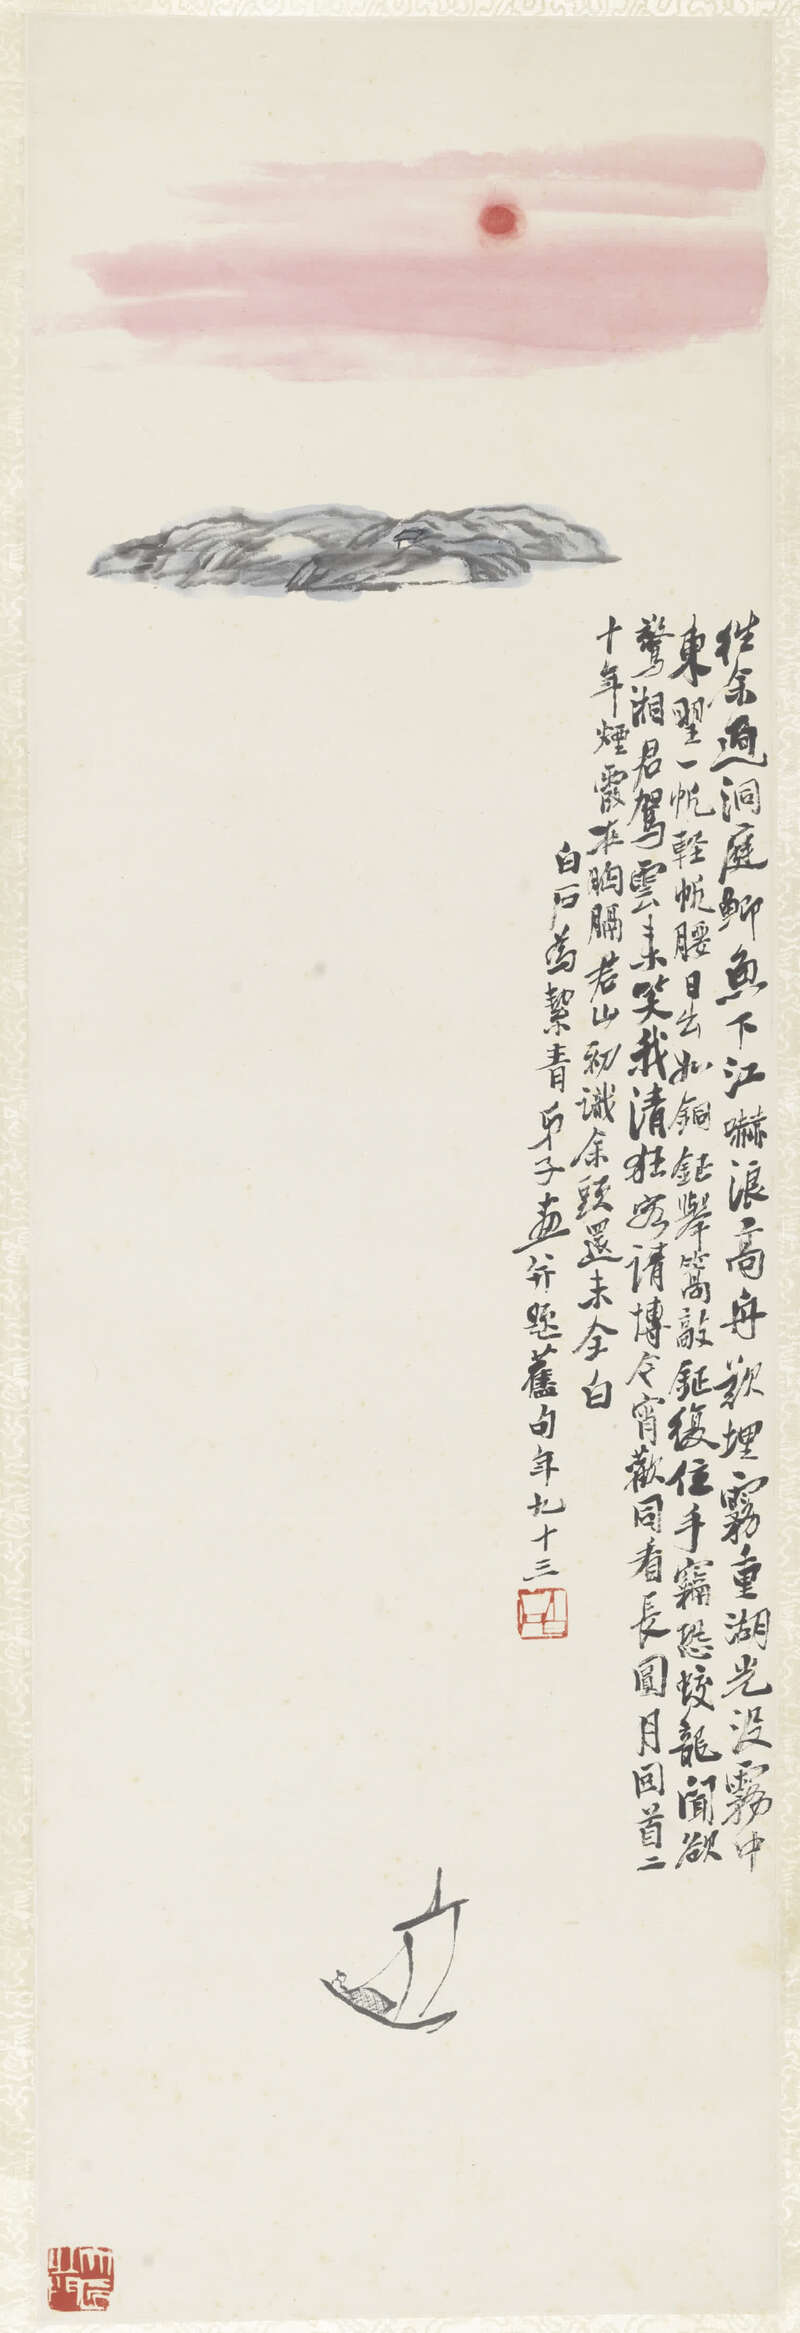 往余過洞庭鯽魚下江嚇浪高舟欲埋霧重湖光沒霧中
東望一帆輕帆腰日出如銅鉦舉篙敲鉦復住手竊恐蛟龍聞欲
驚湘君駕雲來笑我清狂客請博今宵歡同看長圓月回首二
十年煙霞在胸膈君山初識余頭還未全白
白石為絜青弟子畫并題舊句年九十三
白石
大匠之門